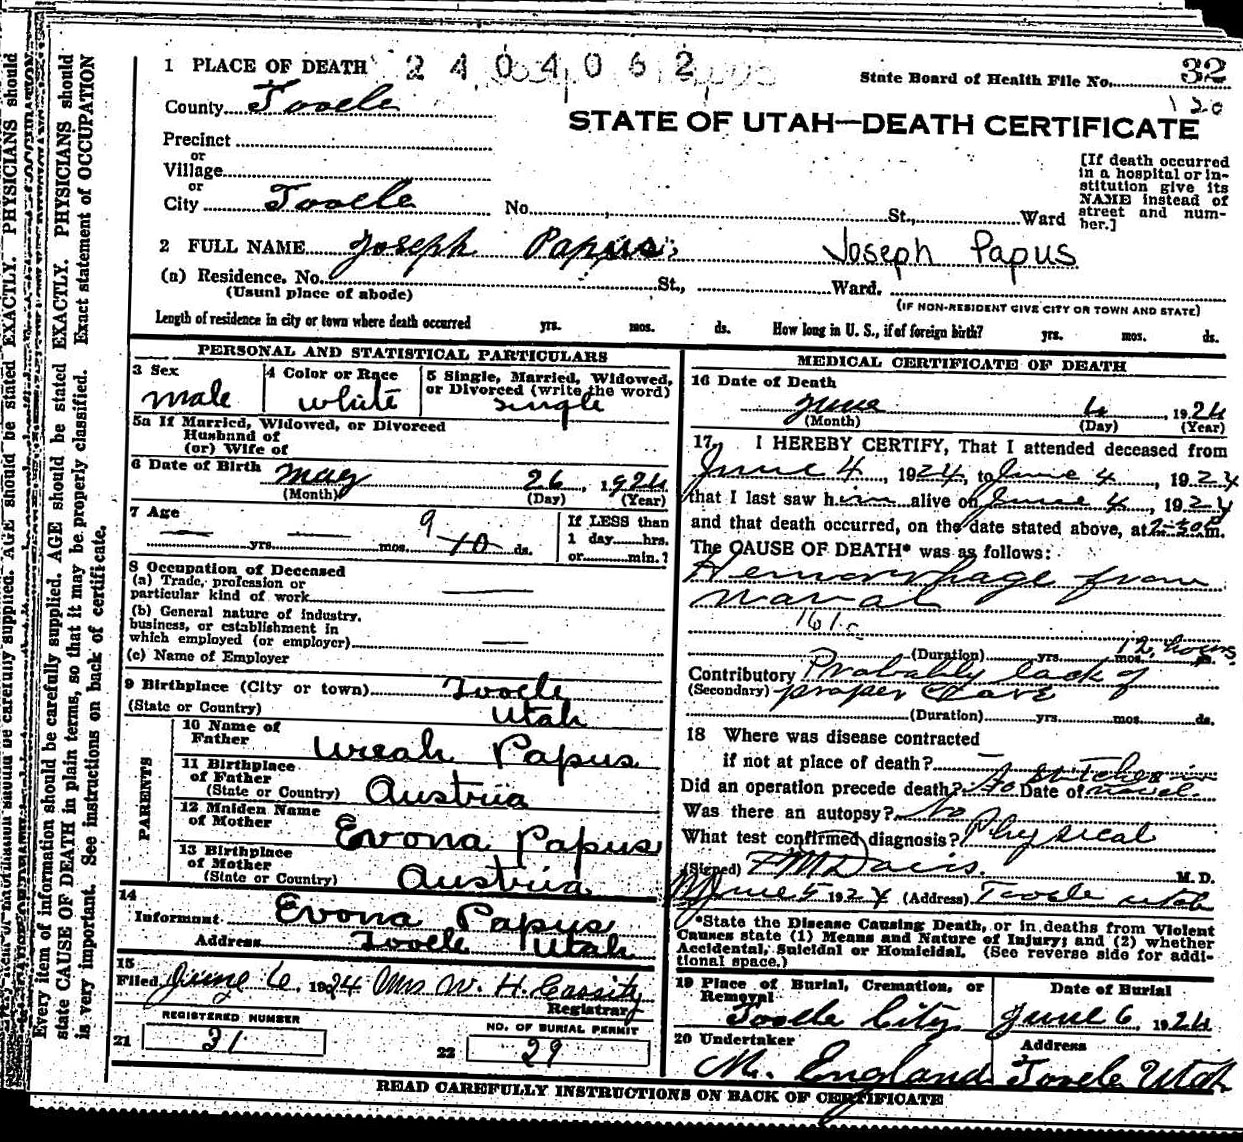 1 PLACE OF DEATH 2404062
State Board of Health File No. 32
120
County Tooele
STATE OF UTAH—DEATH CERTIFICATE
Precinct
or
Village
or
City Tooele No. St., Ward
[If death occurred
in a hospital or in-
stitution give its
NAME instead of
street and num-
ber.]
2 FULL NAME Joseph Papus Joseph Papus
(a) Residence. No. St., Ward.
(Usual place of abode) (IF NON-RESIDENT GIVE CITY OR TOWN AND STATE)
Length of residence in city or town where death occurred yrs. mos. ds. How long in U. S., if of foreign birth? yrs. mos. ds.
PERSONAL AND STATISTICAL PARTICULARS
3 Sex
male
4 Color or Race
white
5 Single, Married, Widowed,
or Divorced (write the word)
single
5a If Married, Widowed, or Divorced
Husband of
(or) Wife of
6 Date of Birth May 26 1924
(Month) (Day) (Year)
7 Age
— yrs. — mos. 9 10 ds.
If LESS than
1 day hrs.
or min.?
8 Occupation of Deceased
(a) Trade, profession or
particular kind of work —
(b) General nature of industry,
business, or establishment in
which employed (or employer) —
(c) Name of Employer
9 Birthplace (City or town) Tooele
(State or Country) Utah
PARENTS
10 Name of
Father Papus
11 Birthplace
of Father
(State or Country) Austria
12 Maiden Name
of Mother Evona Papus
13 Birthplace
of Mother
(State or Country) Austria
14
Informant Evona Papus
Address Tooele Utah
15
Filed June 6, 1924 Mrs W. H. Cassity
Registrar
REGISTERED NUMBER
21 31
NO. OF BURIAL PERMIT
22 29
MEDICAL CERTIFICATE OF DEATH
16 Date of Death
June 4, 1924
(Month) (Day) (Year)
17, I HEREBY CERTIFY, That I attended deceased from
June 4, 1924, to June 4, 1924
that I last saw him alive on June 4, 1924
and that death occurred, on the date stated above, at 2-30 P m.
The CAUSE OF DEATH* was as follows:
Hemorrhage from
naval
161c
(Duration) yrs. mos. 12 hours ds.
Contributory Probably lack of
(Secondary) proper care
(Duration) yrs. mos. ds.
18 Where was disease contracted
if not at place of death? —
Did an operation precede death? Date of stitches in navel
Was there an autopsy? No
What test confirmed diagnosis? Physical
(Signed) F M Davis. M. D.
June 5 1924 (Address) Tooele Utah
*State the Disease Causing Death, or in deaths from Violent
Causes state (1) Means and Nature of Injury; and (2) whether
Accidental, Suicidal or Homicidal. (See reverse side for addi-
tional space.)
19 Place of Burial, Cremation, or
Removal
Tooele City
Date of Burial
June 6, 1924
20 Undertaker
M. England
Address
Tooele Utah
READ CAREFULLY INSTRUCTIONS ON BACK OF CERTIFICATE
Every item of information should be carefully supplied. AGE should be stated EXACTLY. PHYSICIANS should
state CAUSE OF DEATH in plain terms, so that it may be properly classified. Exact statement of OCCUPATION
is very important. See instructions on back of certificate.